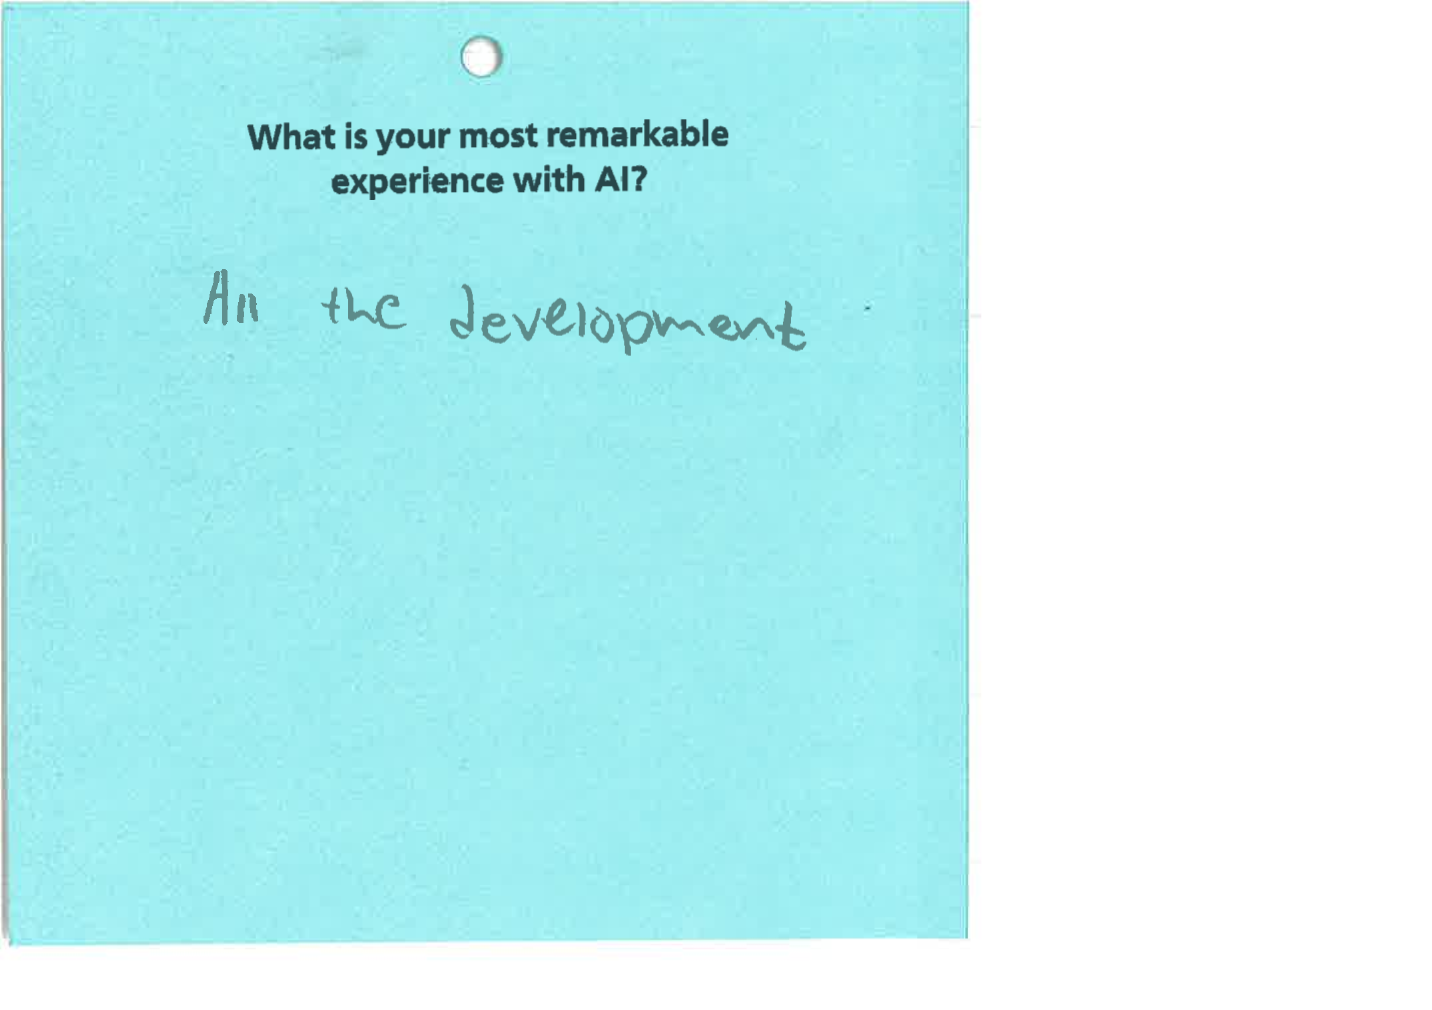 What is your most remarkable
experience with AI?
All the development